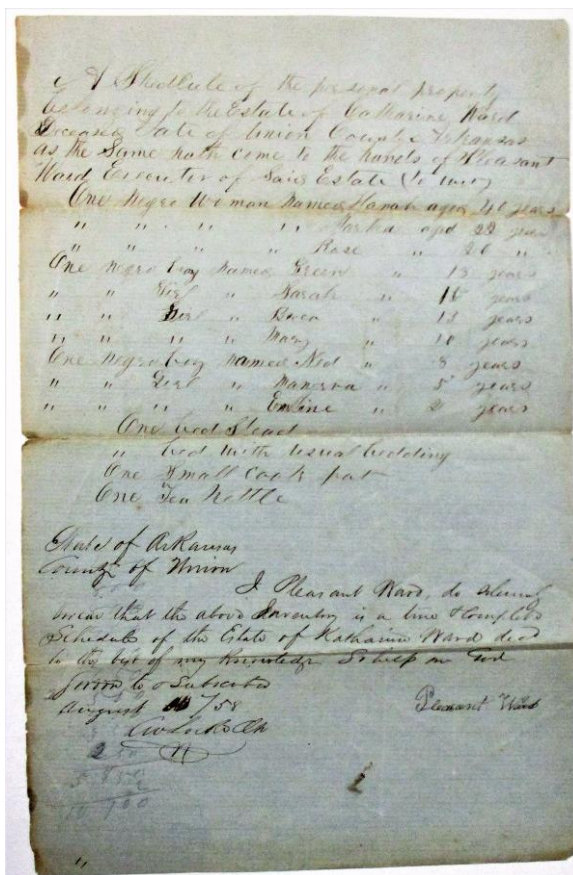 A Shedule of the personal property
belonging to the Estate of Catharine Ward
Deceased Late of Union County Arkansas
as the Same hath come to the hands of Pleasant
Ward Executer of Said Estate (to wit)
One Negro Woman named Hanah aged 40 years
" " " " aged 22 years
" " " " Rose " 20 "
One Negro boy named Green " 18 years
" " Girl " Sarah " years
" " Girl " " 13 years
" " " " Mary " 10 years
One Negro boy named Ned " 8 years
" " Girl " Manerva " 5 years
" " " " Emline " 2 years
One bed Stead
" bed with usual bedding
One Small cook pot
One Tea Kettle
State of Arkansas
County of Union
I Pleasant Ward, do solemnly
swear that the above Inventory is a true & complete
Schedule of the Estate of Katharine Ward decd
to the best of my Knowledge So help me God
Sworn to & Subscribed
August /58
Pleasant Ward